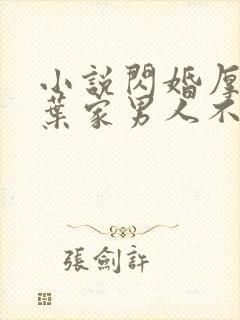 小說閃婚厚
葉家男人不
張劍許